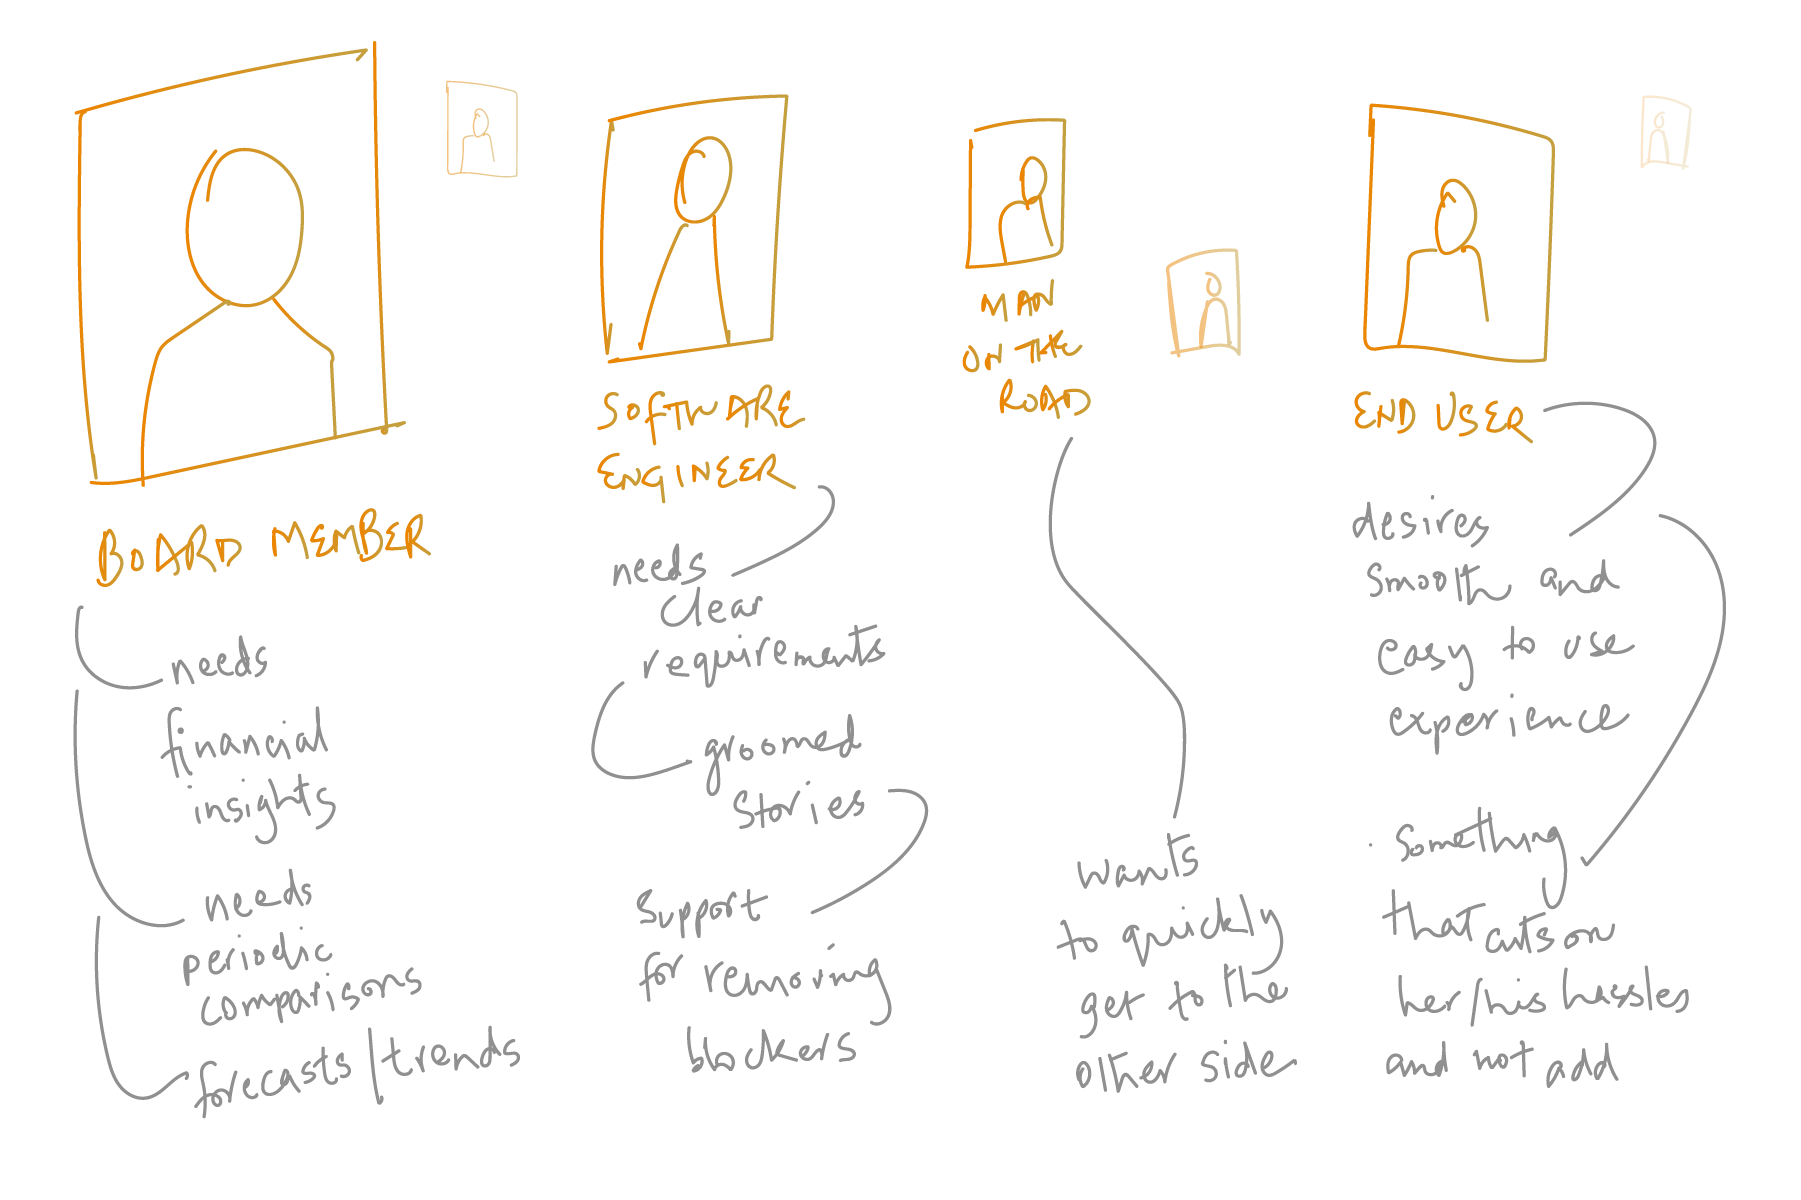 BOARD MEMBER
needs
financial
insights
needs
periodic
comparisons
forecasts/trends
SOFTWARE
ENGINEER
needs
clear
requirements
groomed
stories
support
for removing
blockers
MAN
ON THE
ROAD
wants
to quickly
get to the
other side
END USER
desires
smooth and
easy to use
experience
. Something
that cuts on
her/his hassles
and not add